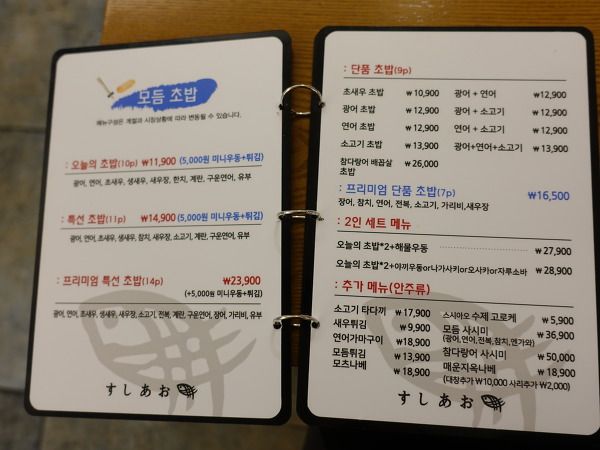 모듬 초밥
메뉴구성은 계절과 시장상황에 따라 변동될 수 있습니다.
: 오늘의 초밥(10p) ₩11,900 (5,000원 미니우동+튀김)
광어, 연어, 초새우, 생새우, 새우장, 한치, 계란, 구운연어, 유부
: 특선 초밥(11p) ₩14,900 (5,000원 미니우동+튀김)
광어, 연어, 초새우, 생새우, 참치, 새우장, 소고기, 계란, 구운연어, 유부
: 프리미엄 특선 초밥(14p) ₩23,900
(+5,000원 미니우동+튀김)
광어, 연어, 초새우, 생새우, 새우장, 소고기, 전복, 계란, 구운연어, 장어, 가리비, 유부
すしあお
: 단품 초밥(9p)
초새우 초밥 ₩10,900 광어 + 연어 ₩12,900
광어 초밥 ₩12,900 광어 + 소고기 ₩12,900
연어 초밥 ₩12,900 연어 + 소고기 ₩12,900
소고기 초밥 ₩13,900 광어+연어+소고기 ₩13,900
참다랑어 배꼽살 초밥 ₩26,000
: 프리미엄 단품 초밥(7p) ₩16,500
장어, 참치, 연어, 전복, 소고기, 가리비, 새우장
: 2인 세트 메뉴
오늘의 초밥*2+해물우동 ₩27,900
오늘의 초밥*2+야끼우동or나가사키or오사카or자루소바 ₩28,900
: 추가 메뉴(안주류)
소고기 타다끼 ₩17,900 스시아오 수제 고로케 ₩5,900
새우튀김 ₩9,900 모듬 사시미 ₩36,900
(광어,연어,전복,참치,엔가와)
연어가마구이 ₩18,900 참다랑어 사시미 ₩50,000
모듬튀김 ₩13,900 매운지옥나베 ₩18,900
모츠나베 ₩18,900 (대창추가 ₩10,000 사리추가 ₩2,000)
すしあお